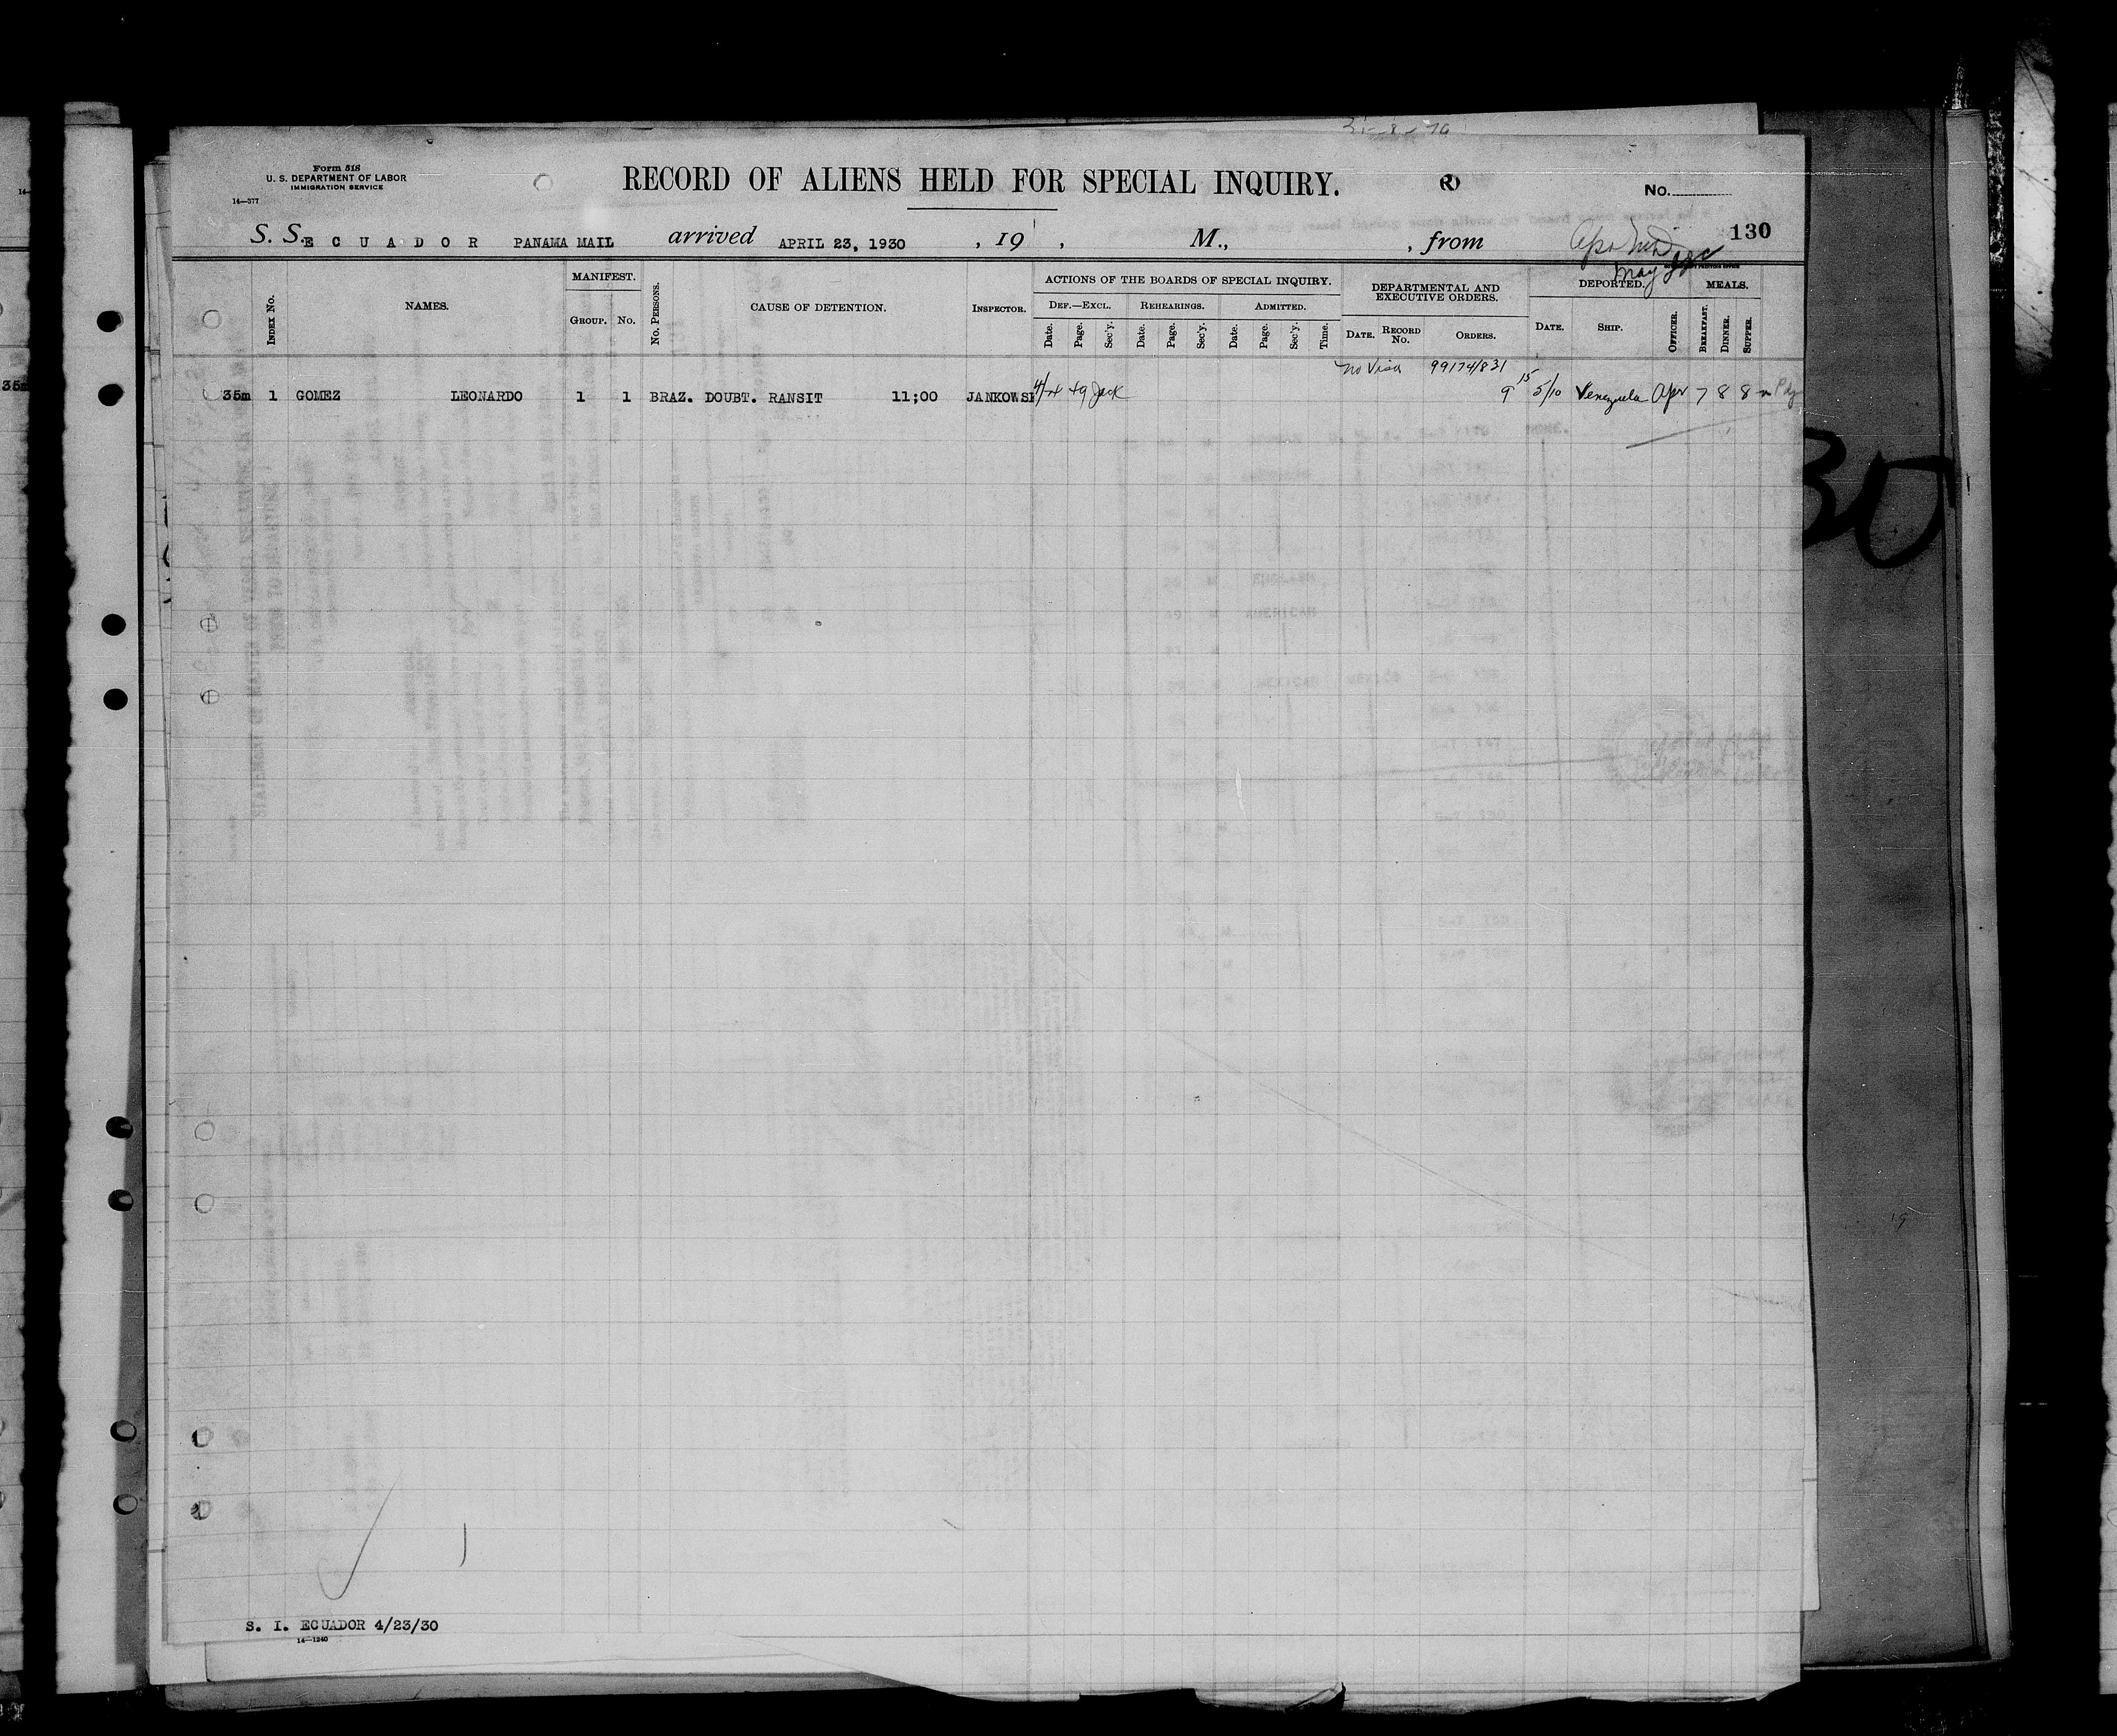 Form 518
U. S. DEPARTMENT OF LABOR
IMMIGRATION SERVICE
14—377
RECORD OF ALIENS HELD FOR SPECIAL INQUIRY.
No.
S. S. E C U A D O R PANAMA MAIL arrived APRIL 23, 1930 , 19 , M., , from
130
May
INDEX NO.
NAMES.
MANIFEST.
GROUP. NO.
NO. PERSONS.
CAUSE OF DETENTION.
INSPECTOR.
ACTIONS OF THE BOARDS OF SPECIAL INQUIRY.
DEF.—EXCL. REHEARINGS. ADMITTED.
Date. Page. Sec'y. Date. Page. Sec'y. Date. Page. Sec'y. Time.
DEPARTMENTAL AND EXECUTIVE ORDERS.
DATE. RECORD NO. ORDERS.
DEPORTED.
DATE. SHIP. OFFICER.
MEALS.
BREAKFAST. DINNER. SUPPER.
No Visa 99174/831
35m 1 GOMEZ LEONARDO 1 1 BRAZ. DOUBT. RANSIT 11;00 JANKOWSK 9 15 5/10 Venezuela Apr 7 8 8
S. I. ECUADOR 4/23/30
14—1240
35m
30